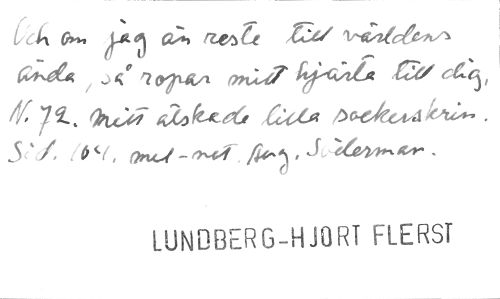 Och om jag än reste till världens
ända, så ropar mitt hjärta till dig,
N. 72. mitt älskade lilla sockerskrin.
Sid. 104. mel-not. Aug. Söderman.
LUNDBERG-HJORT FLERST